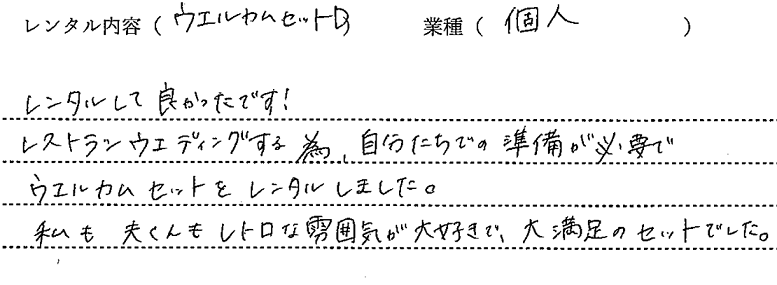 レンタル内容（ウエルカムセットD） 業種（個人）
レンタルして良かったです!
レストランウエディングする為、自分たちでの準備が必要で
ウエルカムセットをレンタルしました。
私も夫くんもレトロな雰囲気が大好きで、大満足のセットでした。